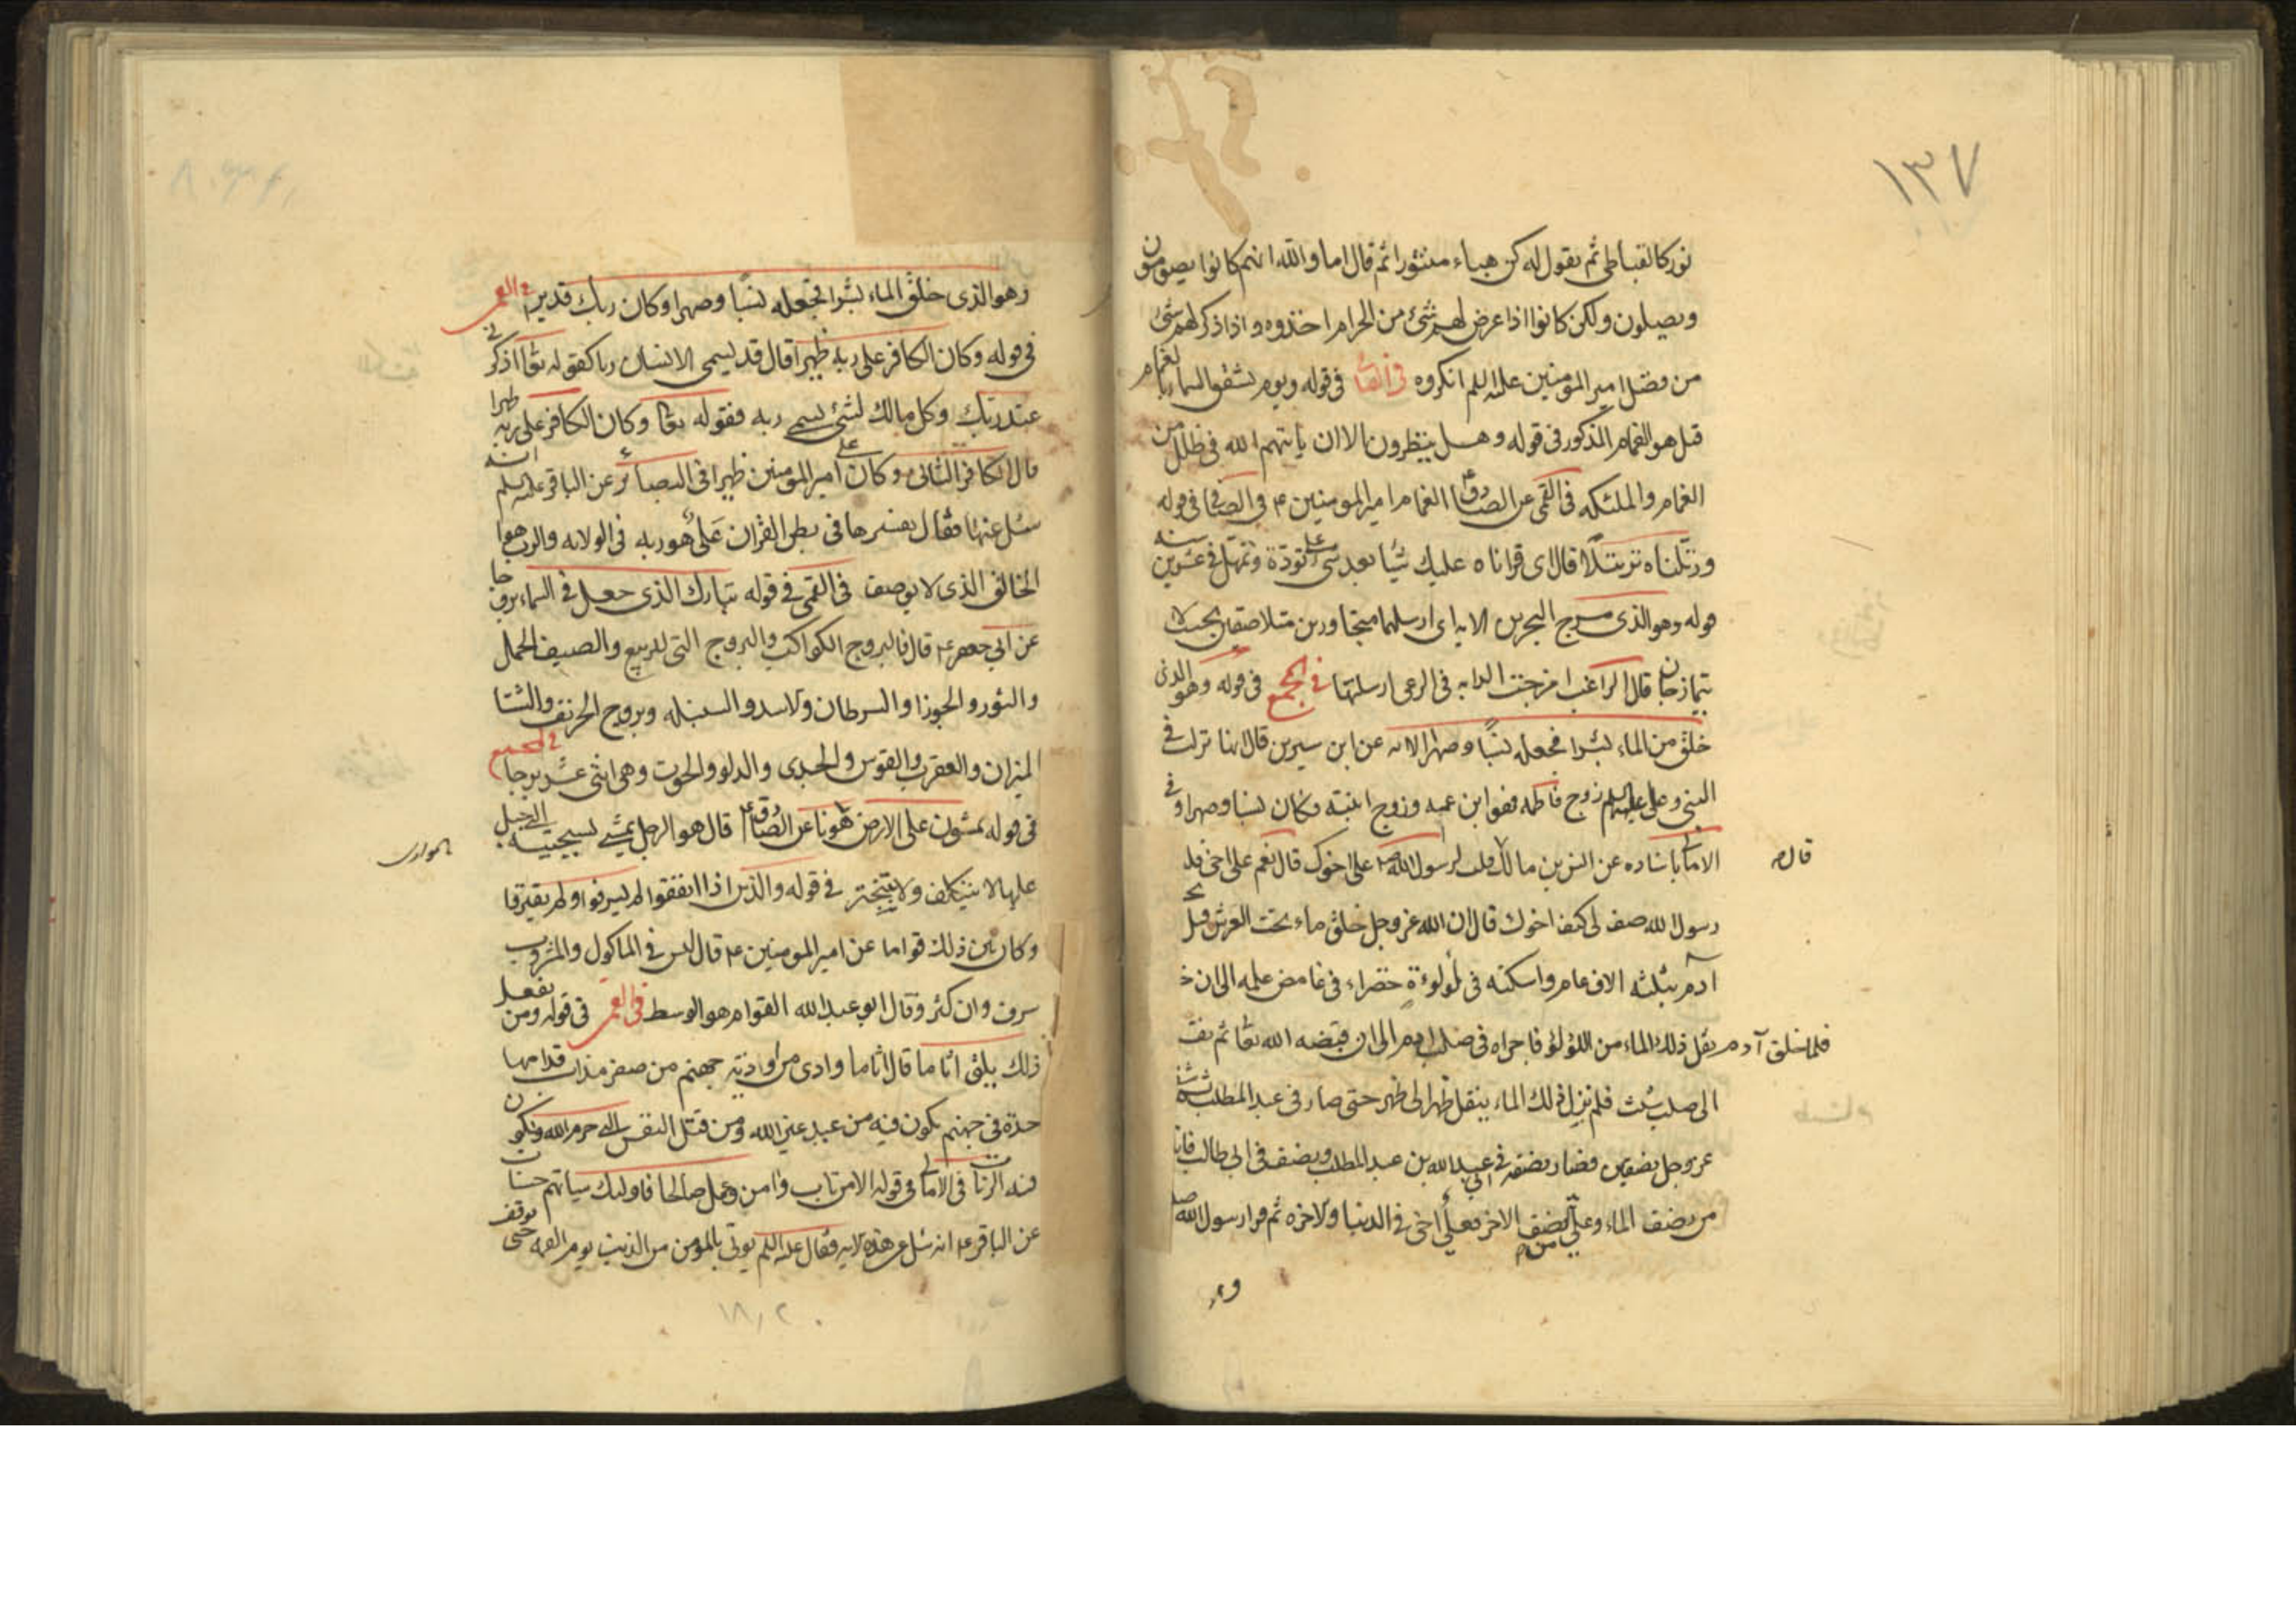 ١٣٧
نور كالقباطى ثم يقول له كن هباء منثورا ثم قال اما والله انهم كانوا يصومون
ويصلون ولكن كانوا اذا عرض لهم شئ من الحرام اخذوه واذا ذكر لهم شئ
من فضل امير المؤمنين عليه السلم انكروه فى الصافى فى قوله ويوم تشقق السماء بالغمام
قيل هو الغمام المذكور فى قوله وهل ينظرون الا ان ياتيهم الله فى ظلل من
الغمام والملئكه فى القمى عن الصادق ع الغمام امير المومنين ع و فى الصافى فى قوله
ورتلناه ترتيلا قال اى قراناه عليك شيئا بعد شئ على تودة وتمهل فى عشرين سنه
قوله وهو الذى مرج البحرين الايه اى ارسلهما متجاورين متلاصقين بحيث لا
يتمازجان قال الراغب امرجت الدابه فى الرعى ارسلتها فى المجمع فى قوله وهو الذى
خلق من الماء بشرا فجعله نسبا وصهرا الايه عن ابن سيرين قال انها نزلت فى
النبى وعلى عليهما السلم زوج فاطمه فهو ابن عمه وزوج ابنته فكان نسبا وصهرا و فى
الامالى باسناده عن انس بن مالك قلت لرسول الله ص على اخوك قال نعم على اخى قلت
قال م
رسول الله صف لى كيف اخوك قال ان الله عز وجل خلق ماء تحت العرش قبل
آدم بثلثه الاف عام واسكنه فى لؤلؤة خضراء فى غامض علمه الى ان خ
فلما خلق آدم نقل ذلك الماء من اللؤلؤ فاجراه فى صلب ادم الى ان قبضه الله تعا ثم نقله
الى صلب شيث فلم يزل ذلك الماء ينقل ظهرا الى ظهر حتى صار فى عبد المطلب ثم شقه
عز وجل نصفين فصار نصفه فى عبد الله بن عبد المطلب ونصف فى ابى طالب فانا
من نصف الماء وعلى من النصف الاخر فعلى اخى فى الدنيا والاخره ثم قرا رسول الله ص
وهو
وهو الذى خلق الماء بشرا فجعله نسبا وصهرا وكان ربك قديرا فى القمى
فى قوله وكان الكافر على ربه ظهيرا قال قد يسمى الانسان ربا كقوله تعا اذكرنى
عند ربك وكل مالك لشئ يسمى ربه فقوله تعا وكان الكافر على ربه ظهيرا
قال الكافر الثانى وكان على امير المومنين ظهيرا فى البصائر عن الباقر عليه السلم انه
سئل عنها فقال تفسيرها فى بطن القران على هو ربه فى الولايه والرب هو ا
الخالق الذى لا يوصف فى القمى فى قوله تبارك الذى جعل فى السماء بروجا
عن ابى جعفر ع قال فالبروج الكواكب والبروج التى للربيع والصيف الحمل
والثور والجوزا والسرطان والاسد والسنبله وبروج الخريف والشتا
الميزان والعقرب والقوس والجدى والدلو والحوت وهى اثنى عشر برجا فى المجمع
فى قوله يمشون على الارض هونا عن الصادق ع قال هو الرجل يمشى بسجيته التى جبل
عليها لا يتكلف ولا يتبختر فى قوله والذين اذا انفقوا لم يسرفوا ولم يقتروا
وكان بين ذلك قواما عن امير المومنين ع قال ليس فى الماكول والمشروب
سرف وان كثر وقال ابو عبد الله القوام هو الوسط فى القمى فى قوله ومن يفعل
ذلك يلق اثاما قال اثاما وادى من اودية جهنم من صفر مذاب قدامها
حدة فى جهنم يكون فيه من عبد غير الله ومن قتل النفس التى حرم الله ويكون
فيه الزنات فى الامالى فى قوله الا من تاب وامن وعمل صالحا فاولئك سياتهم حسنات
عن الباقر ع انه سئل عن هذه الايه فقال عليه السلم يوتى بالمومن من الذنيب يوم القيمه حتى يوقف